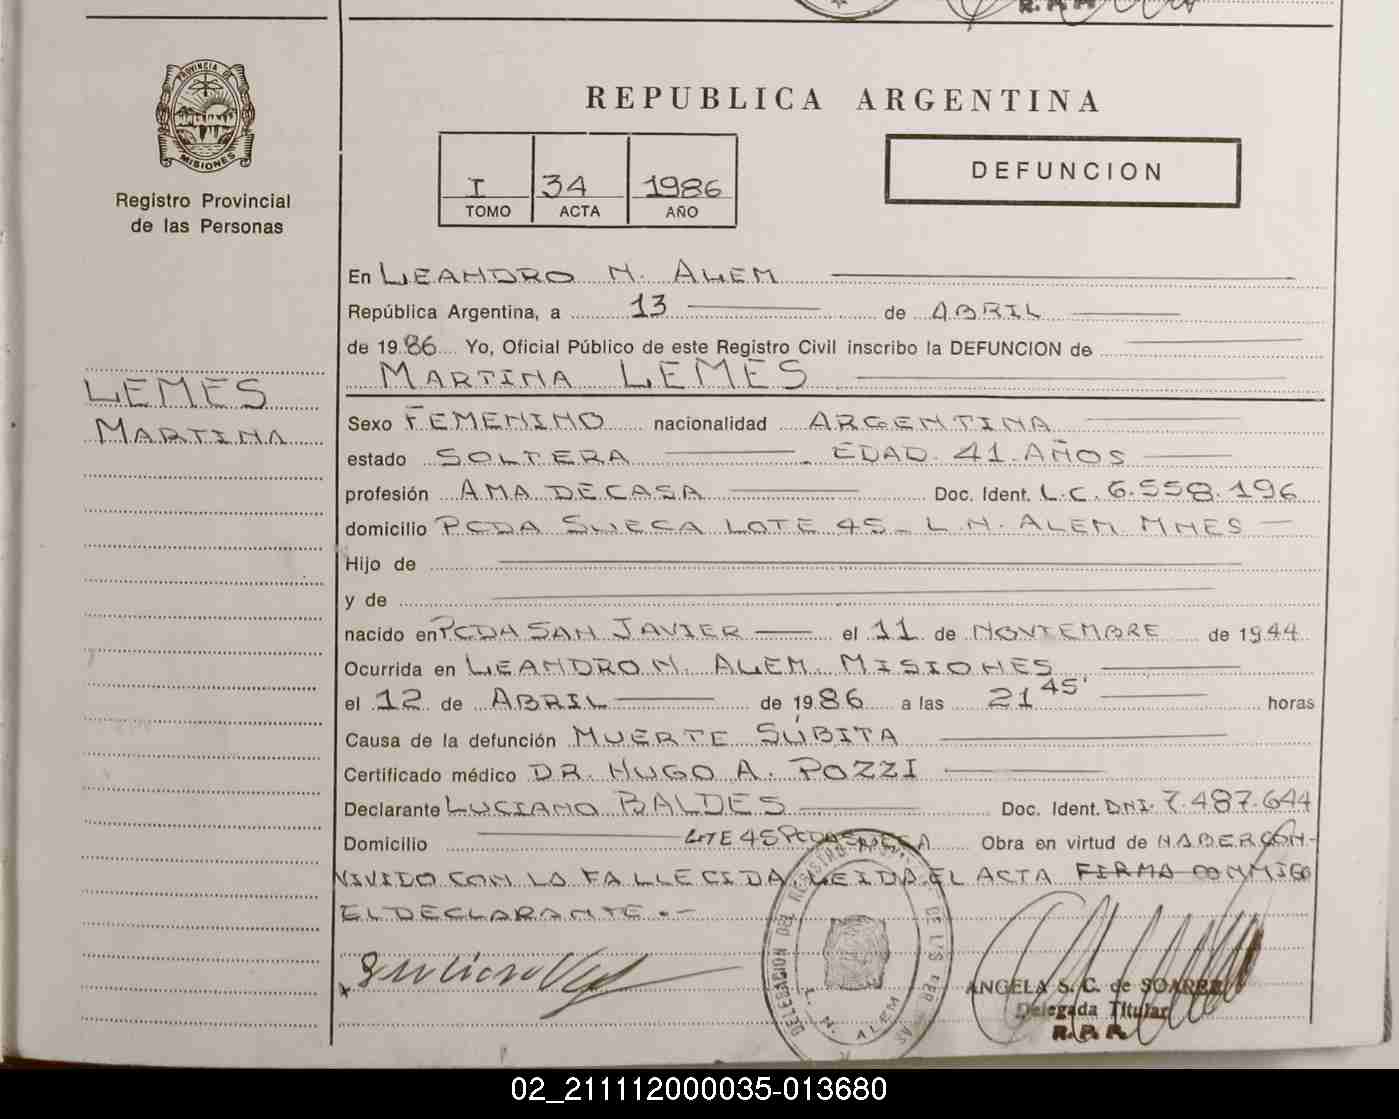 PROVINCIA DE
MISIONES
Registro Provincial
de las Personas
REPUBLICA ARGENTINA
I 34 1986
TOMO ACTA AÑO
DEFUNCION
En LEANDRO N. ALEM
República Argentina, a 13 de ABRIL
de 1986 Yo, Oficial Público de este Registro Civil inscribo la DEFUNCION de
MARTINA LEMES
LEMES
MARTINA
Sexo FEMENINO nacionalidad ARGENTINA
estado SOLTERA EDAD 41 AÑOS
profesión AMA DE CASA Doc. Ident. L.C. 6.558.196
domicilio PCDA SUECA LOTE 45 - L.N. ALEM MNES
Hijo de
y de
nacido en PCDA SAN JAVIER el 11 de NOVIEMBRE de 1944
Ocurrida en LEANDRO N. ALEM. MISIONES
el 12 de ABRIL de 1986 a las 21 45' horas
Causa de la defunción MUERTE SÚBITA
Certificado médico DR. HUGO A. POZZI
Declarante LUCIANO BALDES Doc. Ident. DNI. 7.487.644
Domicilio LOTE 45 PCDA SUECA Obra en virtud de HABER CON-
VIVIDO CON LA FALLECIDA LEIDA EL ACTA FIRMA CONMIGO
EL DECLARANTE.-
DELEGACION DEL REGISTRO
L. N. ALEM
ANGELA S. C. de SOARES
Delegada Titular
R.P.P.
02_211112000035-013680